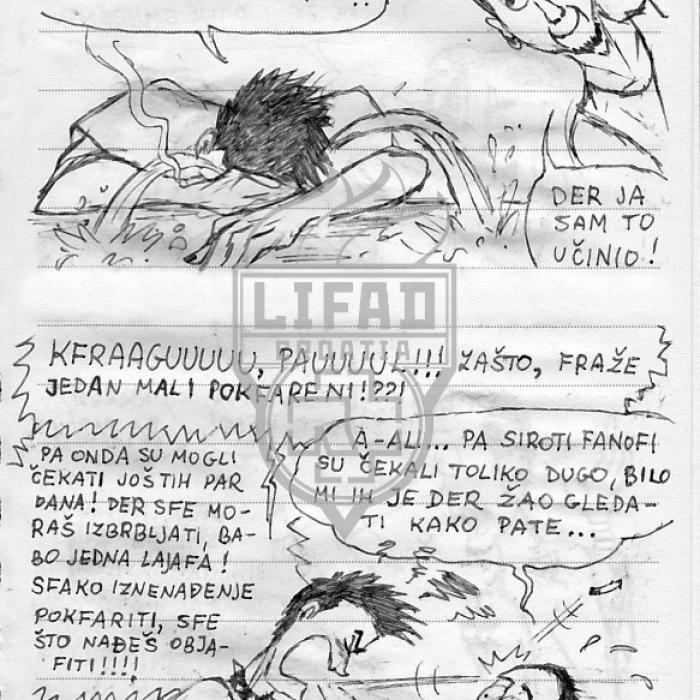 DER JA
SAM TO
UČINIO!
LIFAD
CROATIA
KFRAAGUUUUU, PAUUUUL!!! ZAŠTO, FRAŽE
JEDAN MALI POKFARENI!??!
PA ONDA SU MOGLI
ČEKATI JOŠ TIH PAR
DANA! DER SFE MO-
RAŠ IZBRBLJATI, BA-
BO JEDNA LAJAFA!
SFAKO IZNENAĐENJE
POKFARITI, SFE
ŠTO NAĐEŠ OBJA-
FITI!!!!
A-ALI... PA SIROTI FANOFI
SU ČEKALI TOLIKO DUGO, BILO
MI IH JE DER ŽAO GLEDA-
TI KAKO PATE...